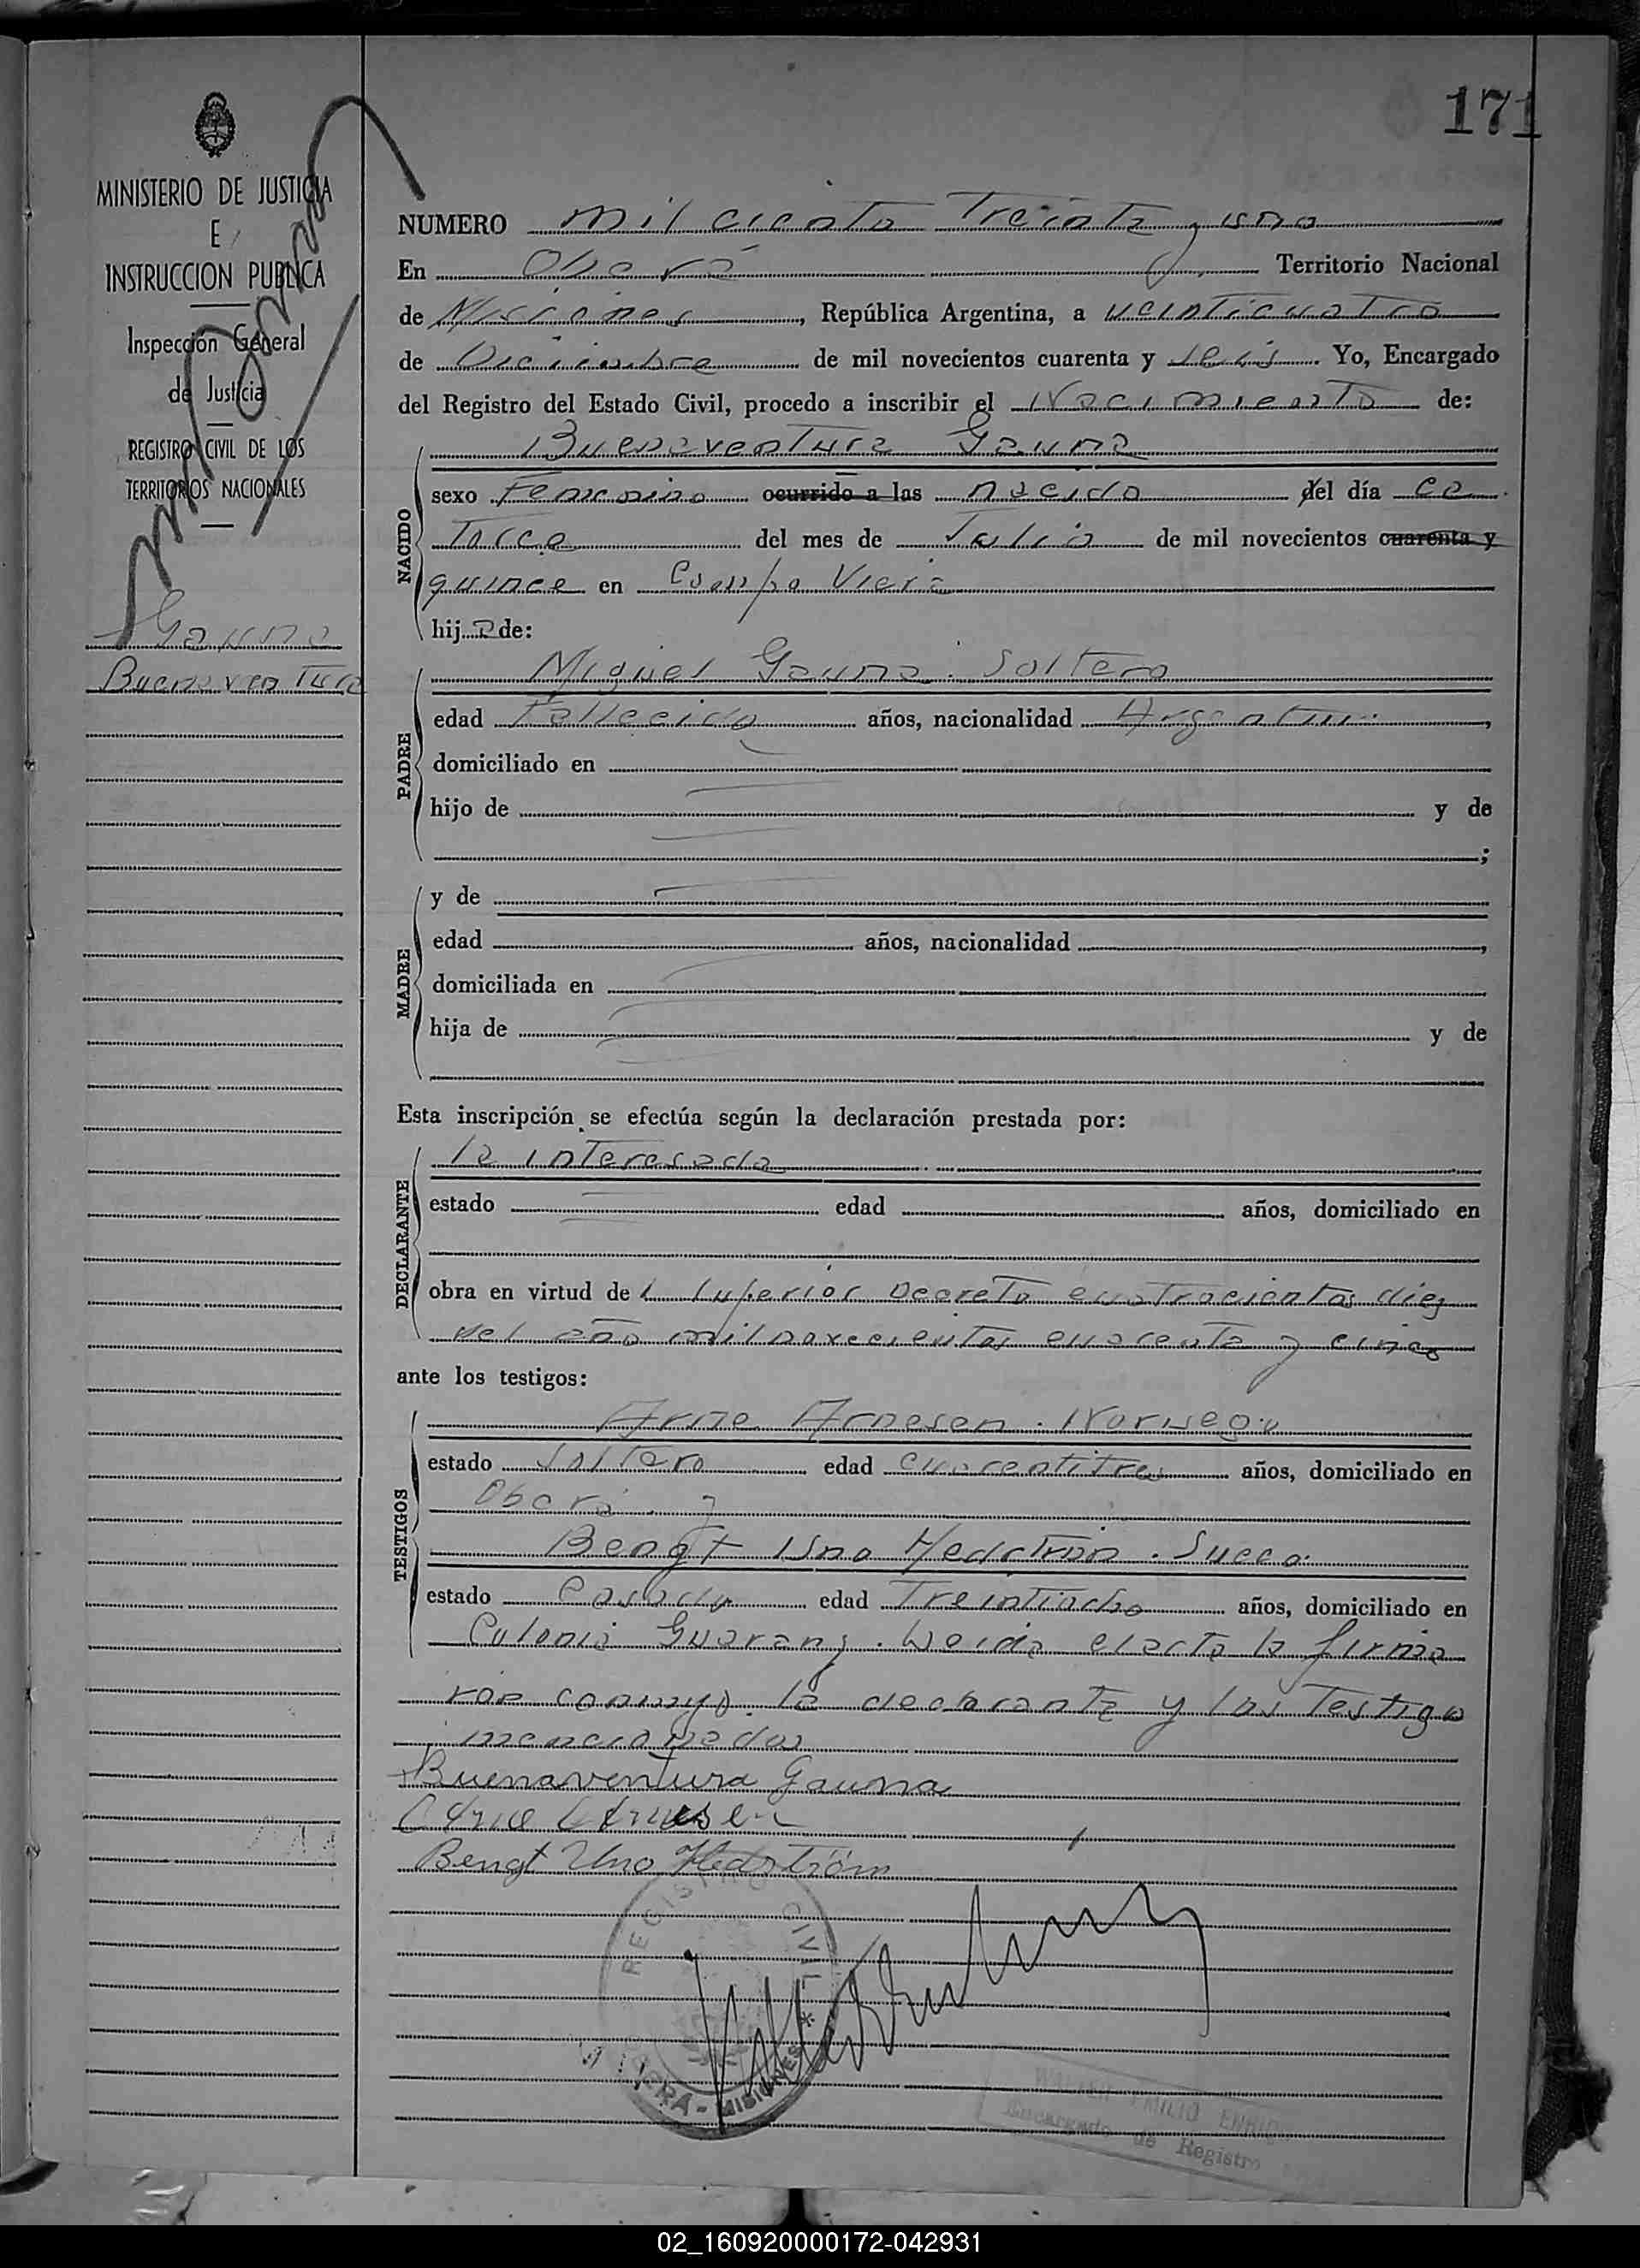 171
MINISTERIO DE JUSTICIA
E
INSTRUCCION PUBLICA
Inspección General
de Justicia
REGISTRO CIVIL DE LOS
TERRITORIOS NACIONALES
Gauna
Buenaventura
NUMERO mil ciento Treinta y uno
En Oberá Territorio Nacional
de Misiones, República Argentina, a veinticuatro
de Diciembre de mil novecientos cuarenta y seis. Yo, Encargado
del Registro del Estado Civil, procedo a inscribir el Nacimiento de:
Buenaventura Gauna
NACIDO
sexo Femenino ocurrido a las nacida del día ca
Torce del mes de Julio de mil novecientos cuarenta y
quince en Campo Viera
hija de:
PADRE
Miguel Gauna. Soltero
edad Fallecido años, nacionalidad Argentino
domiciliado en
hijo de y de
;
MADRE
y de
edad años, nacionalidad,
domiciliada en
hija de y de
Esta inscripción se efectúa según la declaración prestada por:
DECLARANTE
la interesada
estado edad años, domiciliado en
obra en virtud del Superior Decreto cuatrocientos diez
del año mil novecientos cuarenta y cinco
ante los testigos:
TESTIGOS
Arne Arnesen. Noruego
estado Soltero edad cuarentitres años, domiciliado en
Oberá y
Bengt Uno Hedström. Sueco.
estado Casado edad Treintiocho años, domiciliado en
Colonia Guarany. Leida el acta la firma
ron conmigo la declarante y los Testigos
mencionados
Buenaventura Gauna
Arne Arnesen
Bengt Uno Hedström
REGISTRO CIVIL
OBERA - MISIONES *
WALTER EMILIO
Encargado de Registro
02_160920000172-042931